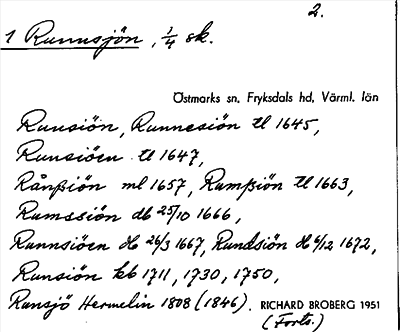 2.
1 Runnsjön, 1/4 sk.
Östmarks sn, Fryksdals hd, Värml. län
Runsiön, Runnesiön tl 1645,
Runsiöen tl 1647,
Rånßiön ml 1657, Rumßiön tl 1663,
Rumssiön db 25/10 1666,
Runnsiöen db 26/3 1667, Rundsiön db 6/12 1672,
Runsiön kb 1711, 1730, 1750,
Runsjö Hermelin 1808 (1846). RICHARD BROBERG 1951
(Forts.)